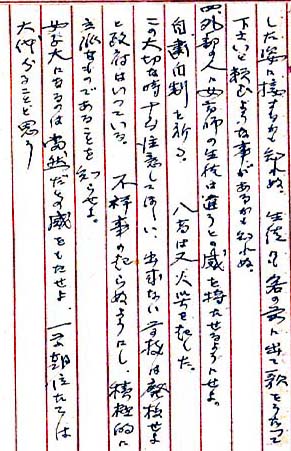 した姿に接するかも知れぬ。生徒が客の前に出て歌をうたって
下さいと頼むような事があるかも知れぬ。
四、外部の人に女高師の生徒は違うとの感を持たせるようにせよ。
自粛自制を祈る。 八高は又火災を起した。
この大切な時する注意してほしい。出来ない学校は廃校せよ
と政府はいっている。 不祥事の起らぬようにし、積極的に
立派なものであることを知らせよ。
女子大になるのは当然だとの感をもたせよ。一高朝泣たては
大件がることと思う